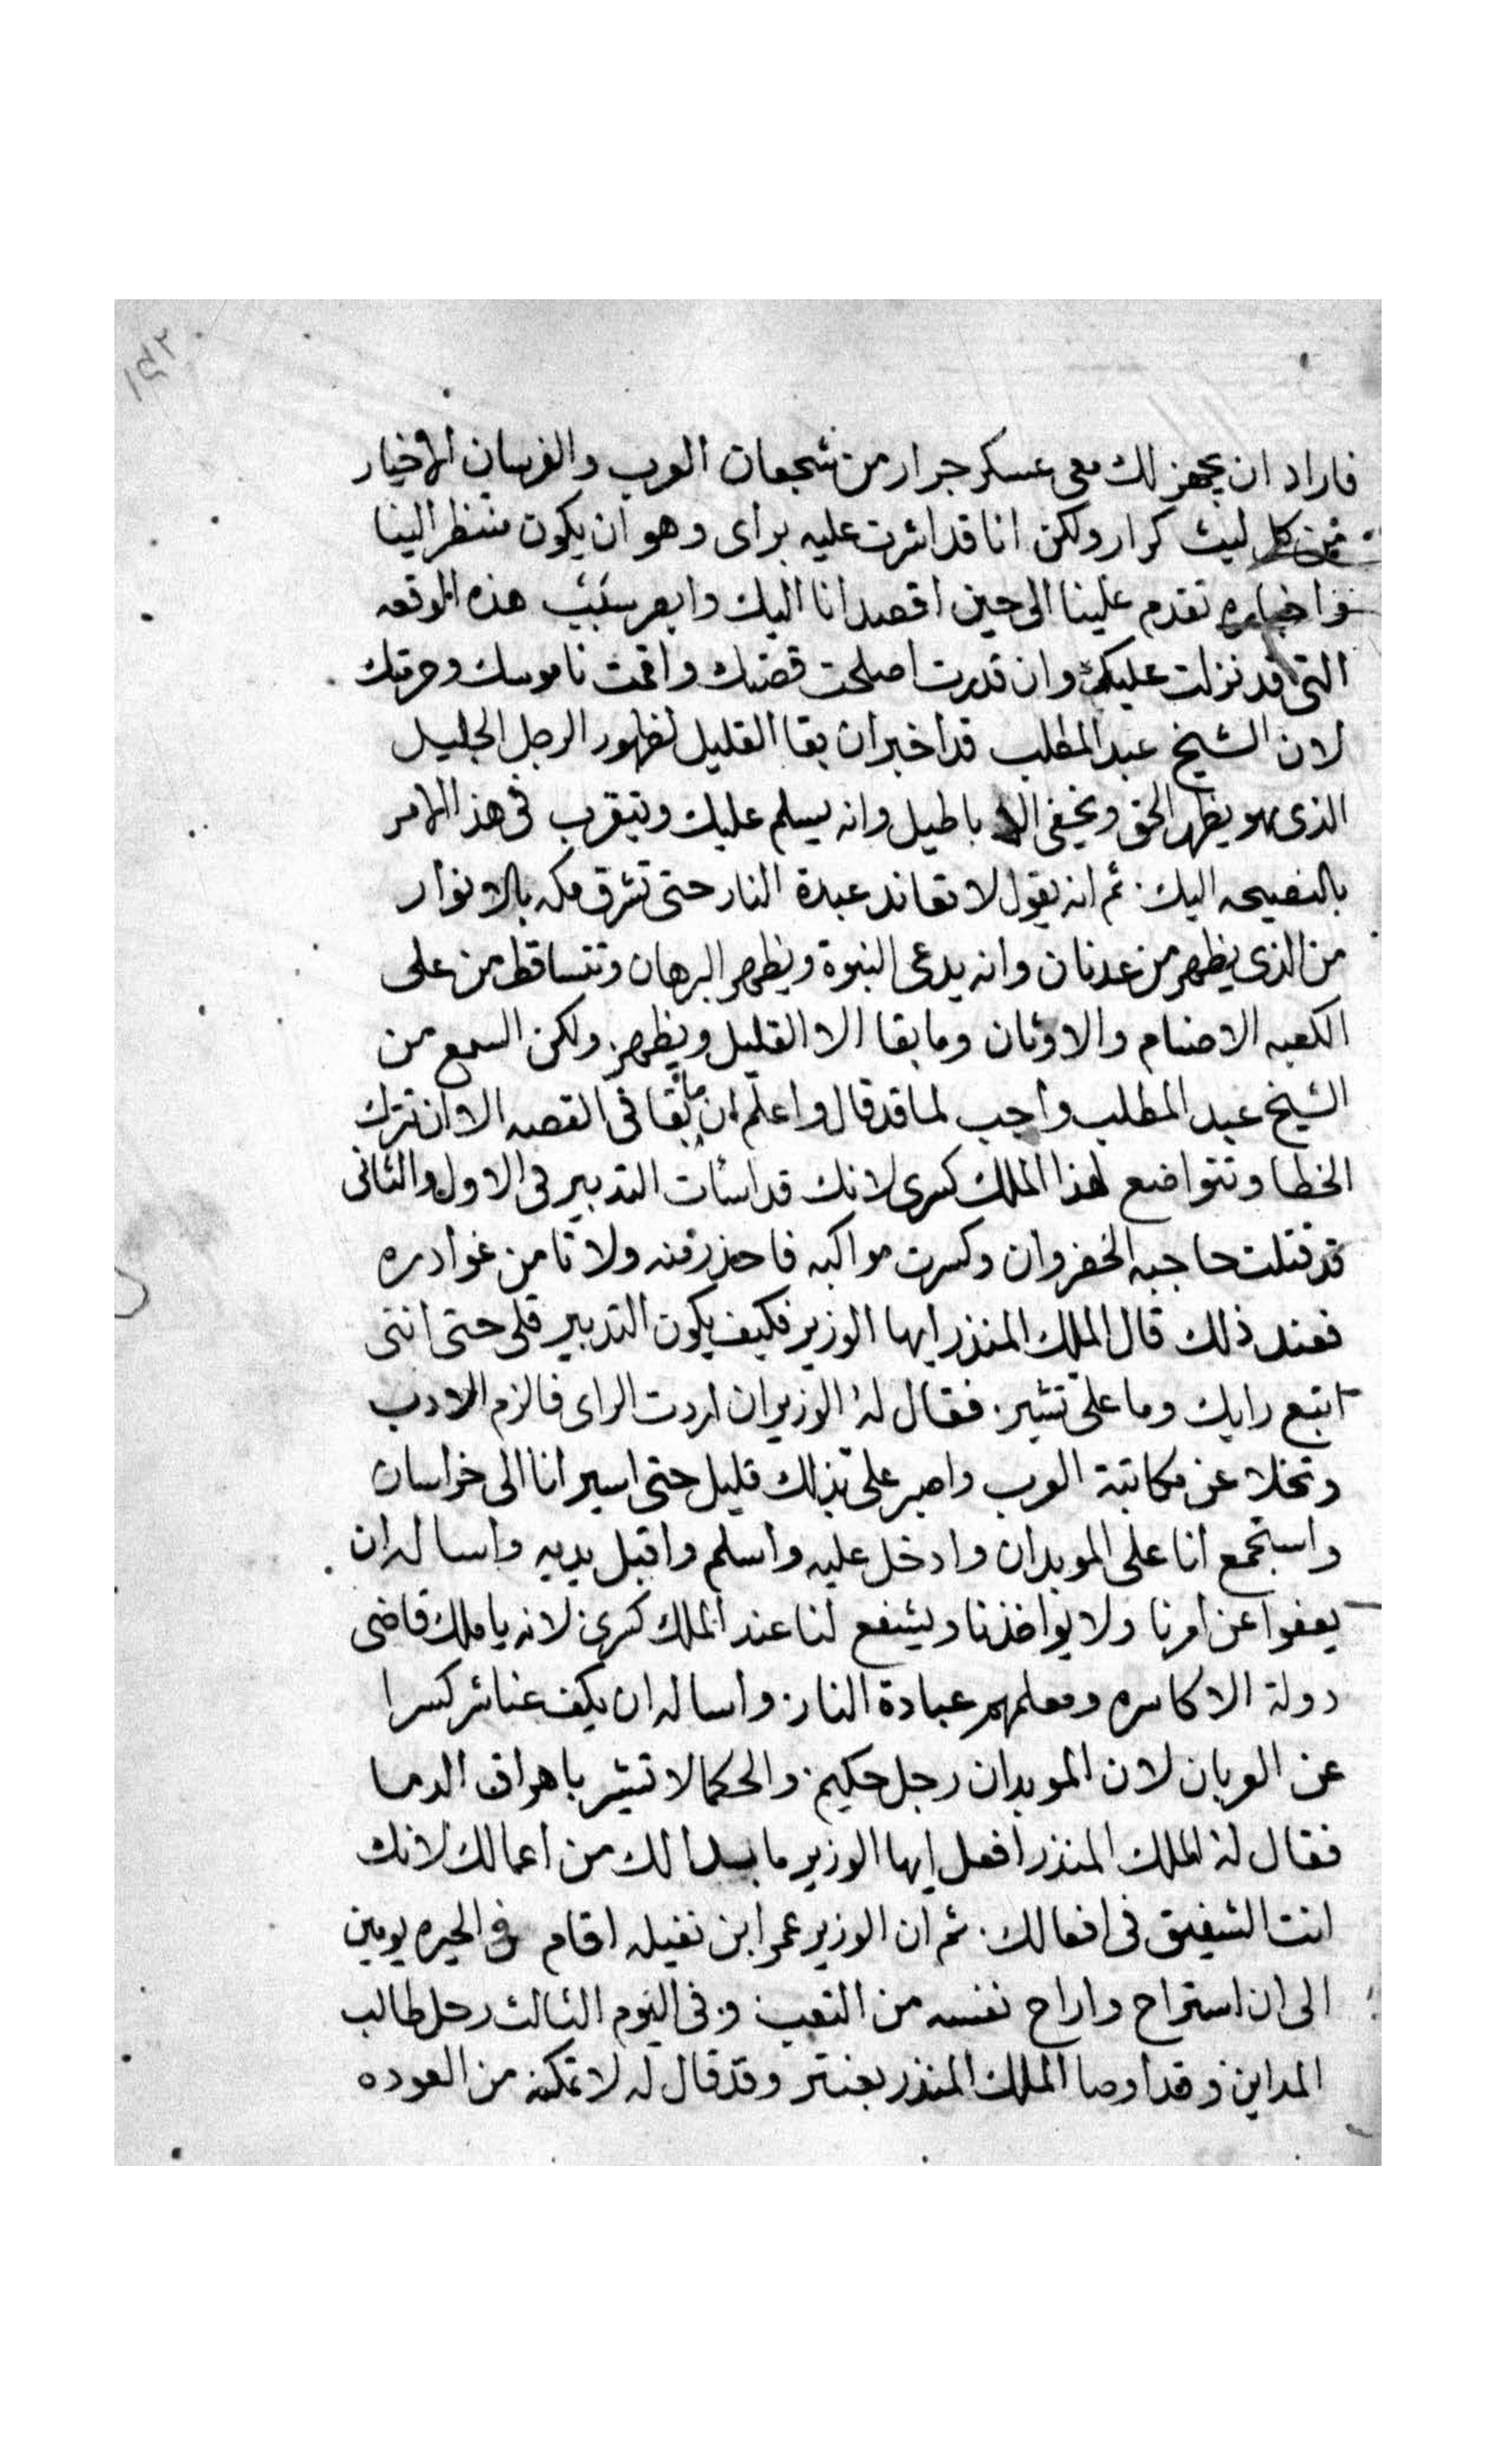 فاراد ان يجهز لك معى عسكر جرار من شجعان العرب والفرسان الاخيار
من كل ليث كرار ولكن انا قد اشرت عليه براى وهو ان يكون منتظر الينا
واخباره تقدم علينا الى حين اقصد انا اليك وابصر سبب هذه الوقعه
التى قد نزلت عليك وان قدرت اصلحت قضتك واقمت ناموسك وحرمتك
لان الشيخ عبد المطلب قد اخبر ان بقا القليل لظهور الرجل الجليل
الذى هو يظهر الحق ويخفى الاباطيل وانه يسلم عليك ويتقرب فى هذا الامر
بالنصيحه اليك ثم انه يقول لا تعاند عبدة النار حتى تشرق مكه بالانوار
من الذى يظهر من عدنان وانه يدعى النبوة ويظهر البرهان وتتساقط من على
الكعبه الاصنام والاوثان وما بقا الا القليل ويظهر ولكن السمع من
الشيخ عبد المطلب واجب لما قد قال واعلم ان ما بقا فى القصه الا ان تترك
الخطا وتتواضع لهذا الملك كسرى لانك قد اسئات التدبير فى الاول والثانى
قد قتلت حاجبه الخضروان وكسرت مواكبه فاحذر منه ولا تامن غوادره
فعند ذلك قال الملك المنذر ايها الوزير فكيف يكون التدبير قلى حتى اننى
اتبع رايك وما على تشير فقال له الوزير ان اردت الراى فالزم الادب
وتخلا عن مكاتبة العرب واصبر على ذلك قليل حتى اسير انا الى خراسان
واستجمع انا على الموبدان وادخل عليه واسلم واقبل يديه واساله ان
يعفوا عن امرنا ولا يواخذنا ويشفع لنا عند الملك كسرى لانه يا ملك قاضى
دولة الاكاسره ومعلمهم عبادة النار واساله ان يكف عنا شر كسرا
عن العربان لان الموبدان رجل حكيم والحكما لا تشير باهراق الدما
فقال له الملك المنذر افعل ايها الوزير ما بدا لك من اعمالك لانك
انت الشفيق فى افعالك ثم ان الوزير عمرا بن نفيله اقام فى الحيره يومين
الى ان استراح واراح نفسه من التعب وفى اليوم الثالث رحل طالب
المداين وقد اوصا الملك المنذر بعنتر وقد قال له لا تمكنه من العوده